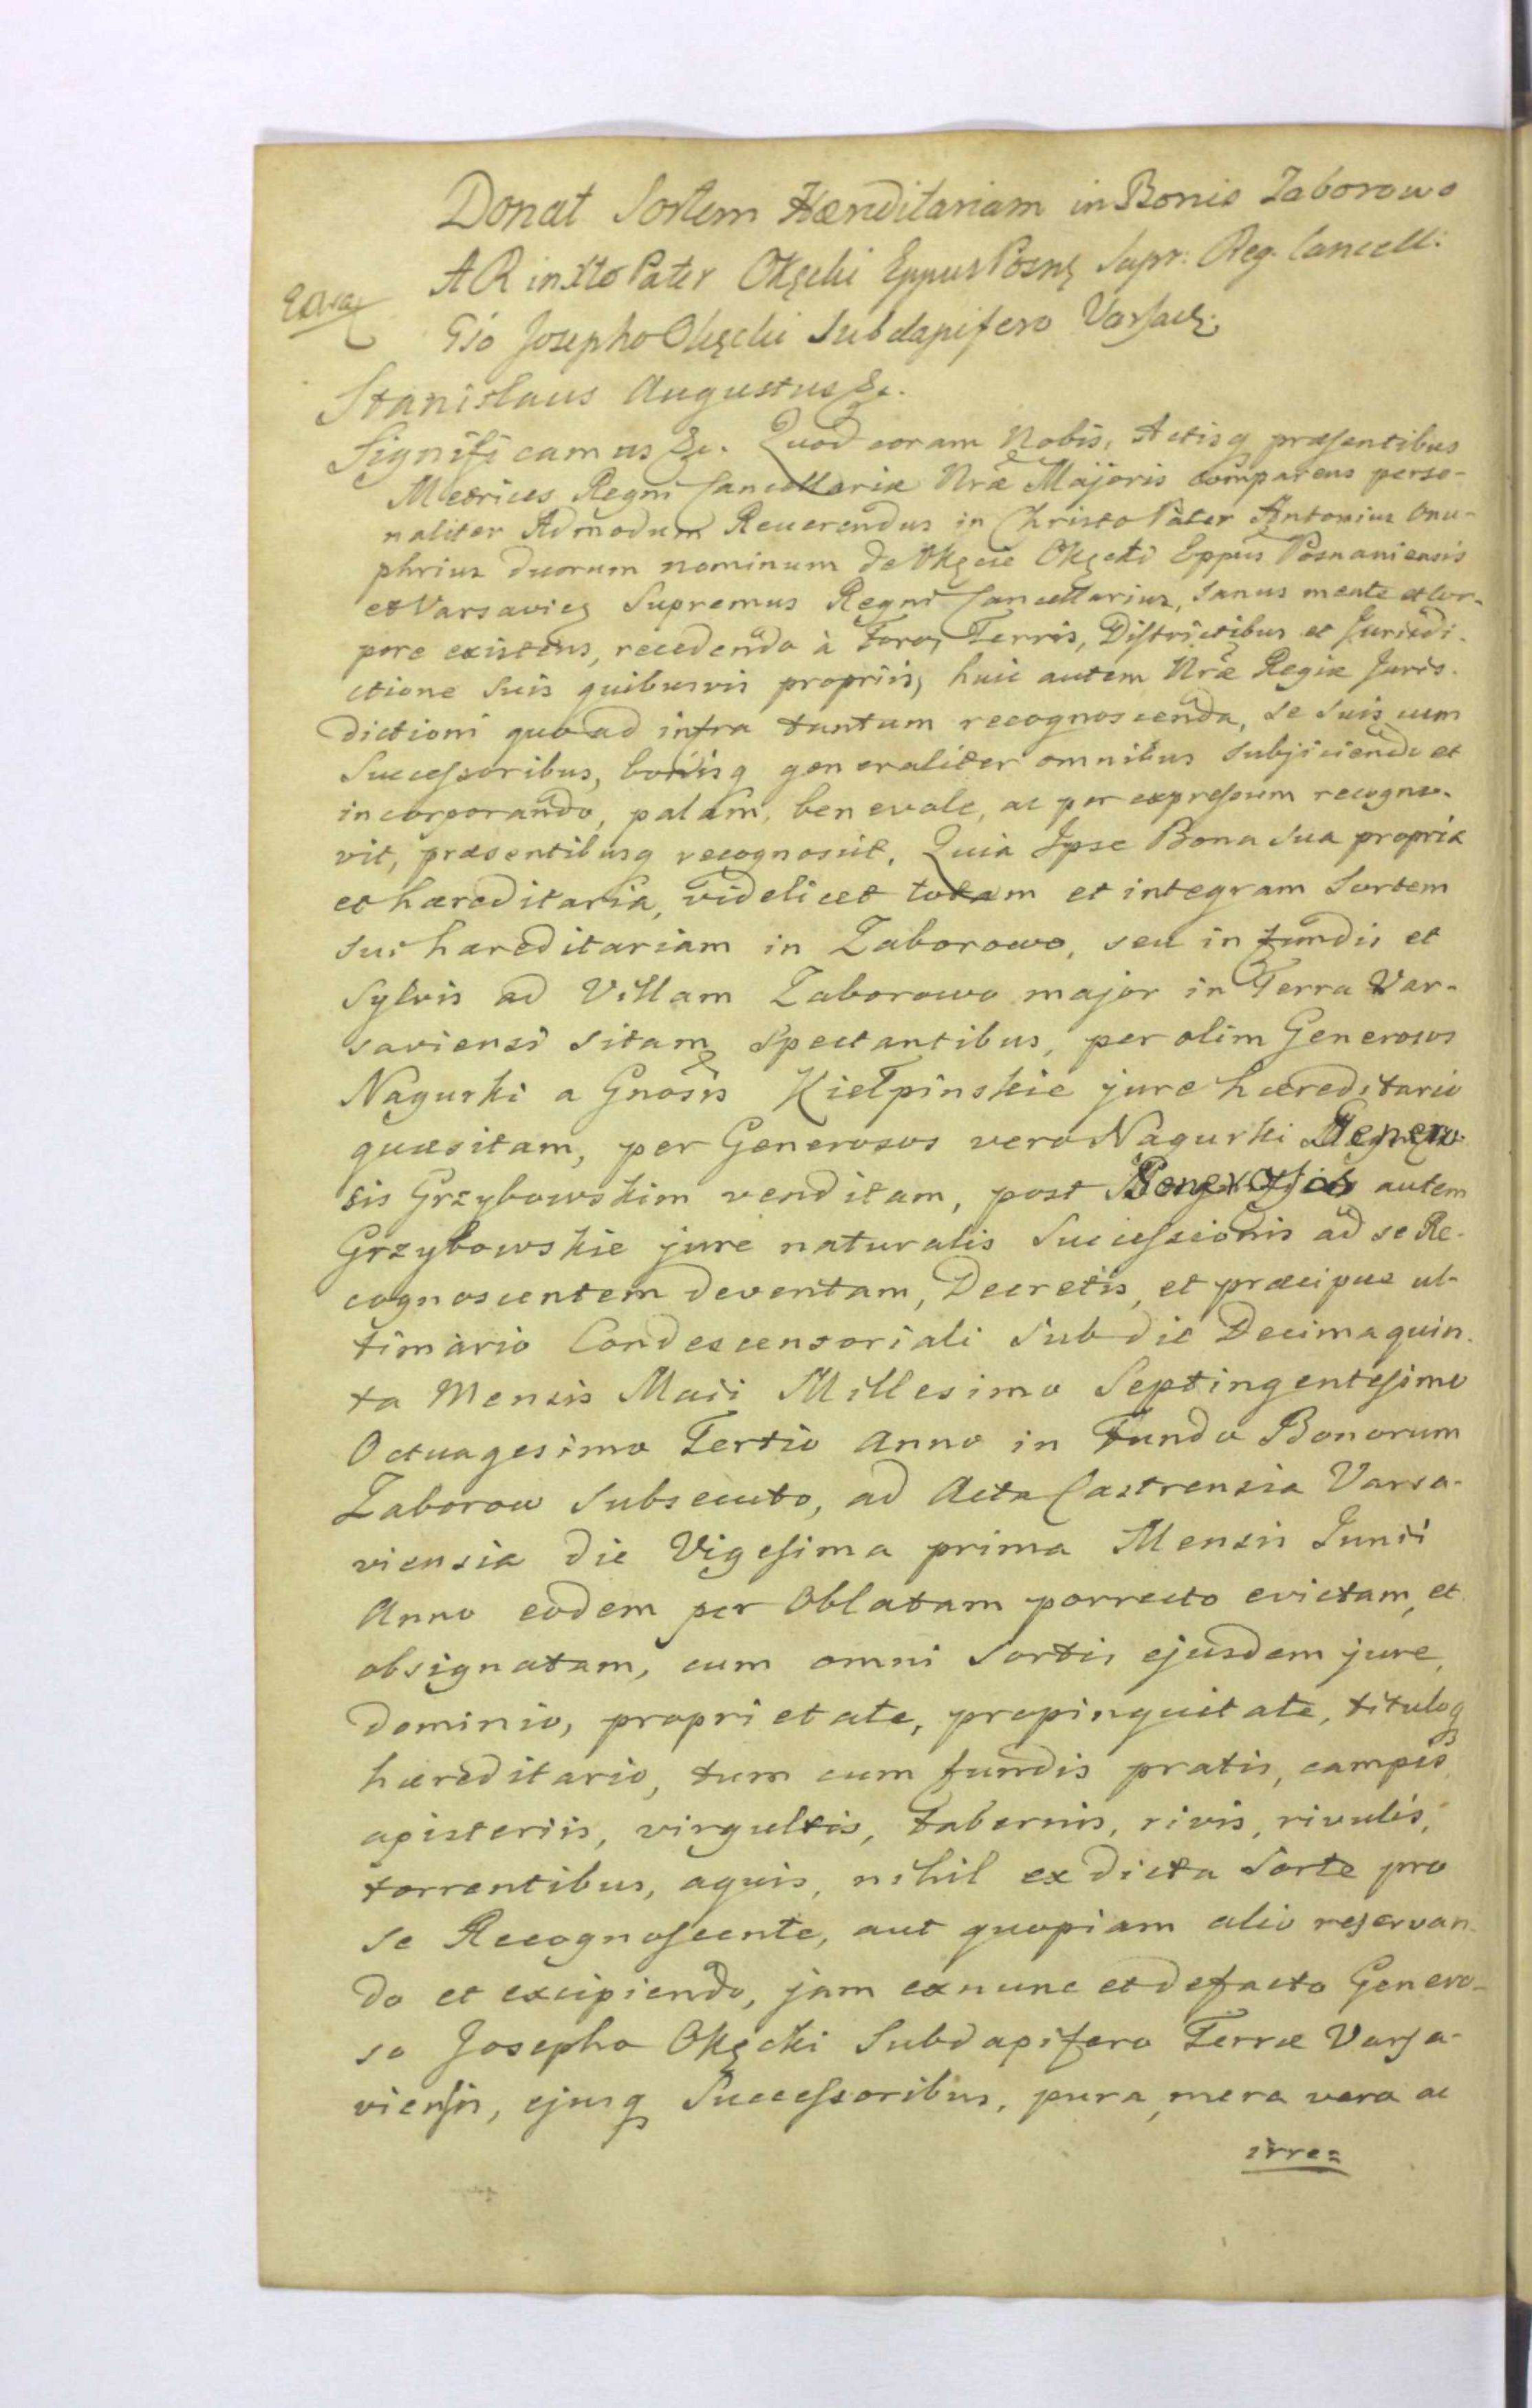 Donat Sortem Hæreditariam in Bonis Zaborowo
A R in Xto Pater Okęcki Eppus Posnę Supr: Reg. Cancell:
Gso Josepho Okęcki Subdapifero Varsaę.
Stanislaus Augustus &c.
Significamus &c. Quod coram Nobis, Actisq præsentibus
Metrices Regni Cancellariæ Nræ Majoris comparens perso-
naliter Admodum Reverendus in Christo Pater Antonius Onu-
phrius duorum nominum de Okęcie Okęcki Eppus Posnaniensis
et Varsavięs Supremus Regni Cancellarius, sanus mente et cor-
pore existens, recedendo à Foro, Terris, Districtibus et Jurisdi-
ctione suis quibusvis propriis, huic autem Nræ Regiæ Juris-
dictioni quoad infra tantum recognoscenda, se suis cum
Successoribus, bonisq generaliter omnibus subjiciendo et
incorporando, palam, benevole, ac per expressum recogno-
vit, præsentibusq recognoscit. Quia Ipse Bona sua propria
et hæreditaria, videlicet totam et integram Sortem
sui hæreditariam in Zaborowo, seu in fundis et
Sylvis ad Villam Zaborowo major in Terra Var-
saviensi sitam spectantibus, per olim Generosos
Nagurki a Gnosis Kiełpinskie jure hæreditario
quæsitam, per Generosos vero Nagurki Genero-
sis Grzybowskim venditam, post Generosos autem
Grzybowskie jure naturalis Successionis ad se Re-
cognoscentem deventam, Decretis, et præcipue ul-
timario Condescensoriali sub die Decima quin-
ta Mensis Maii Millesimo Septingentesimo
Octuagesimo Tertio Anno in Fundo Bonorum
Zaborow subsecuto, ad Acta Castrensia Varsa-
viensia die Vigesima prima Mensis Junii
Anno eodem per Oblatam porrecto evictam, et
obsignatam, cum omni Sortis ejusdem jure,
dominio, proprietate, propinquitate, tituloq
hæreditario, tum cum fundis pratis, campis
apisteriis, virgultis, tabernis, rivis, rivulis,
torrentibus, aquis, nihil ex dicta Sorte pro
se Recognoscente, aut quopiam alio reservan-
do et excipiendo, jam ex nunc et de facto Genero-
so Josepho Okęcki Subdapifero Terræ Varsa-
viensis, ejusq Successoribus, pura, mera vera ac
irre=